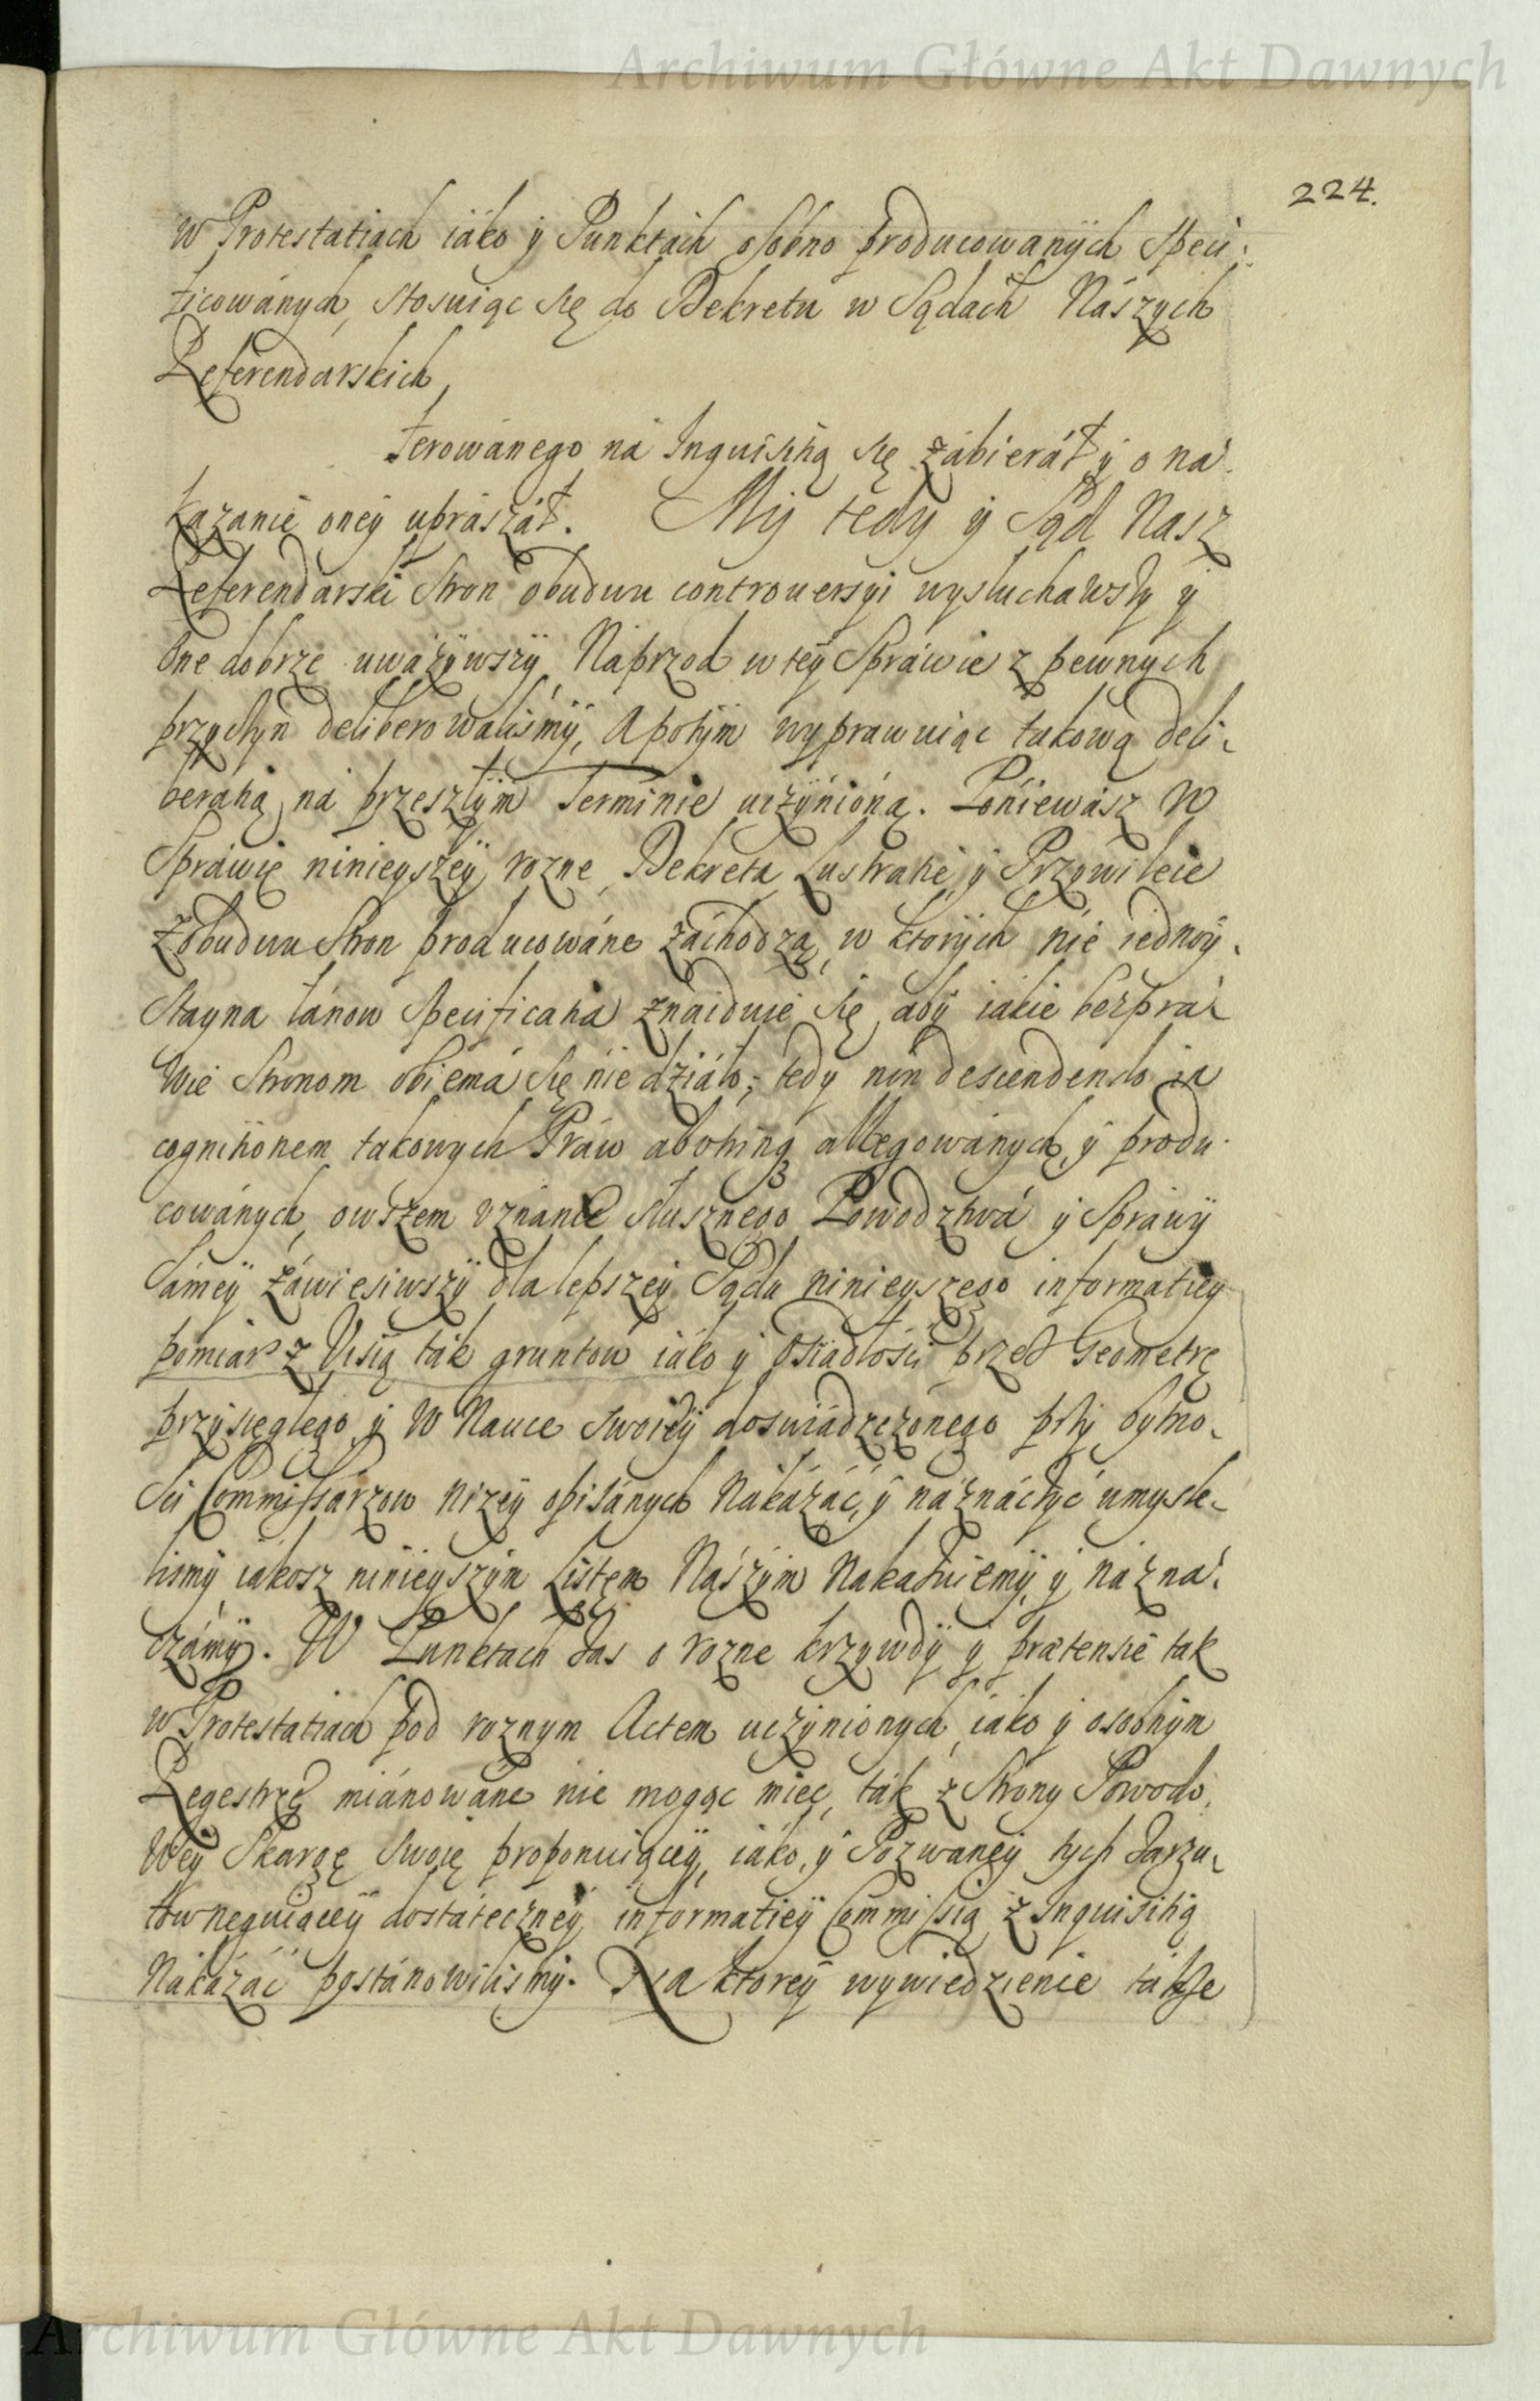 Archiwum Główne Akt Dawnych
224.
w Protestatiach iáko ÿ Punktách osobno producowanÿch Speci:
ficowánych, stosuiąc się do Dekretu w Sądách Nászych
Referendarskich,
ferowánego ná Inquisitią się zábieráł ÿ o ná¬
kazanie oneÿ uprászáł. Mÿ tedÿ ÿ Sąd Nasz
Referendarski Stron obudwu controuersÿi wysłuchawszÿ ÿ
one dobrze uważÿwszÿ Náprzod w teÿ Spráwie z pewnÿch
przyczÿn deliberowálismÿ, A potÿm wyprawuiąc takową deli¬
beratią ná przeszłÿm Terminie uczÿnioną. Poniewász w
Spráwie ninieyszeÿ rozne Dekreta Lustratie ÿ Przÿwileie
z obudwu Stron producowáne záchodzą, w ktorÿch nie iednoÿ¬
stayna łánow Specificatia znáiduie się, abÿ iakie bezprá¬
wie Stronom obiemá się nie działo; tedy non descendendo in
cognitionem takowych Práw abotinq allegowánych, ÿ produ¬
cowánych, owszem vznanie słusznego Powodztwá ÿ Sprawÿ
sámeÿ záwiesiwszÿ dla lepszeÿ Sądu ninieyszego informatiey
pomiar z Visią ták gruntow iáko ÿ osiádłości przez Geometrę
przÿsięgłego ÿ w Nauce swoieÿ doswiádczonego przÿ bytno¬
sci Commissárzow niżeÿ opisánych Nakázáć, ÿ náznáczÿć umysli¬
lismÿ iákosz ninieyszÿm Listem Nászÿm Nakazuiemÿ ÿ názná¬
czámÿ. W Punktach zas o rozne krzywdÿ ÿ prætensie tak
w Protestatiach pod roznym Actem uczÿnionych, iáko ÿ osobnÿm
Regestrze miánowáne nie mogąc mieć, ták z Strony Powodo¬
weÿ Skargę swoię proponuiąceÿ, iáko ÿ Pozwaneÿ tych zarzu¬
tow neguiąceÿ dostáteczneÿ informatieÿ Commissią z Inquisitią
Nákázáć postánowilismÿ. Na ktoreÿ wywiedzienie tákże
Archiwum Główne Akt Dawnych